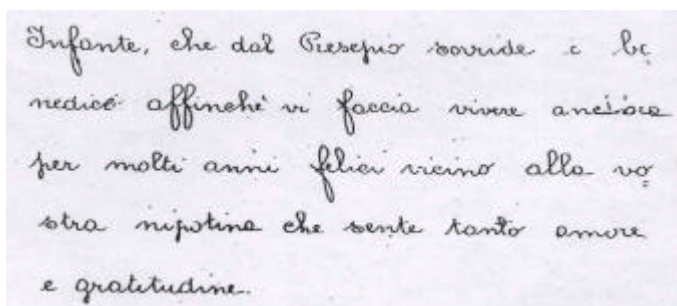 Infante, che dal Presepio sorride e be
nedice affinchè vi faccia vivere ancora
per molti anni felici vicino alla vo
stra nipotina che sente tanto amore
e gratitudine.